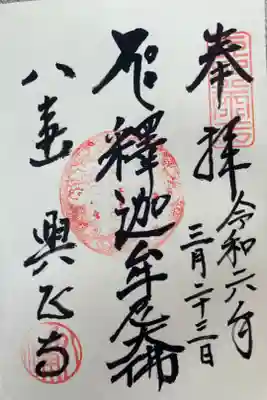 奉拝
令和六年
三月二十三日
釋迦牟尼大佛
八事 興正寺